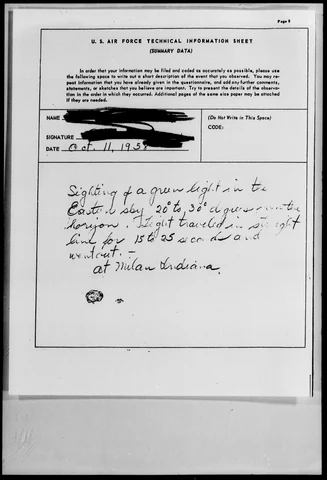 Page 9
U. S. AIR FORCE TECHNICAL INFORMATION SHEET
(SUMMARY DATA)
In order that your information may be filed and coded as accurately as possible, please use
the following space to write out a short description of the event that you observed. You may re-
peat information that you have already given in the questionnaire, and add any further comments,
statements, or sketches that you believe are important. Try to present the details of the observa-
tion in the order in which they occurred. Additional pages of the same size paper may be attached
if they are needed.
NAME
(Do Not Write in This Space)
CODE:
SIGNATURE
DATE Oct. 11, 1958
Sighting of a green light in the
Eastern sky 20° to 30° degrees
horizon. Light traveled in straight
line for 15 to 25 seconds and
went out. -
at Milan Indiana.